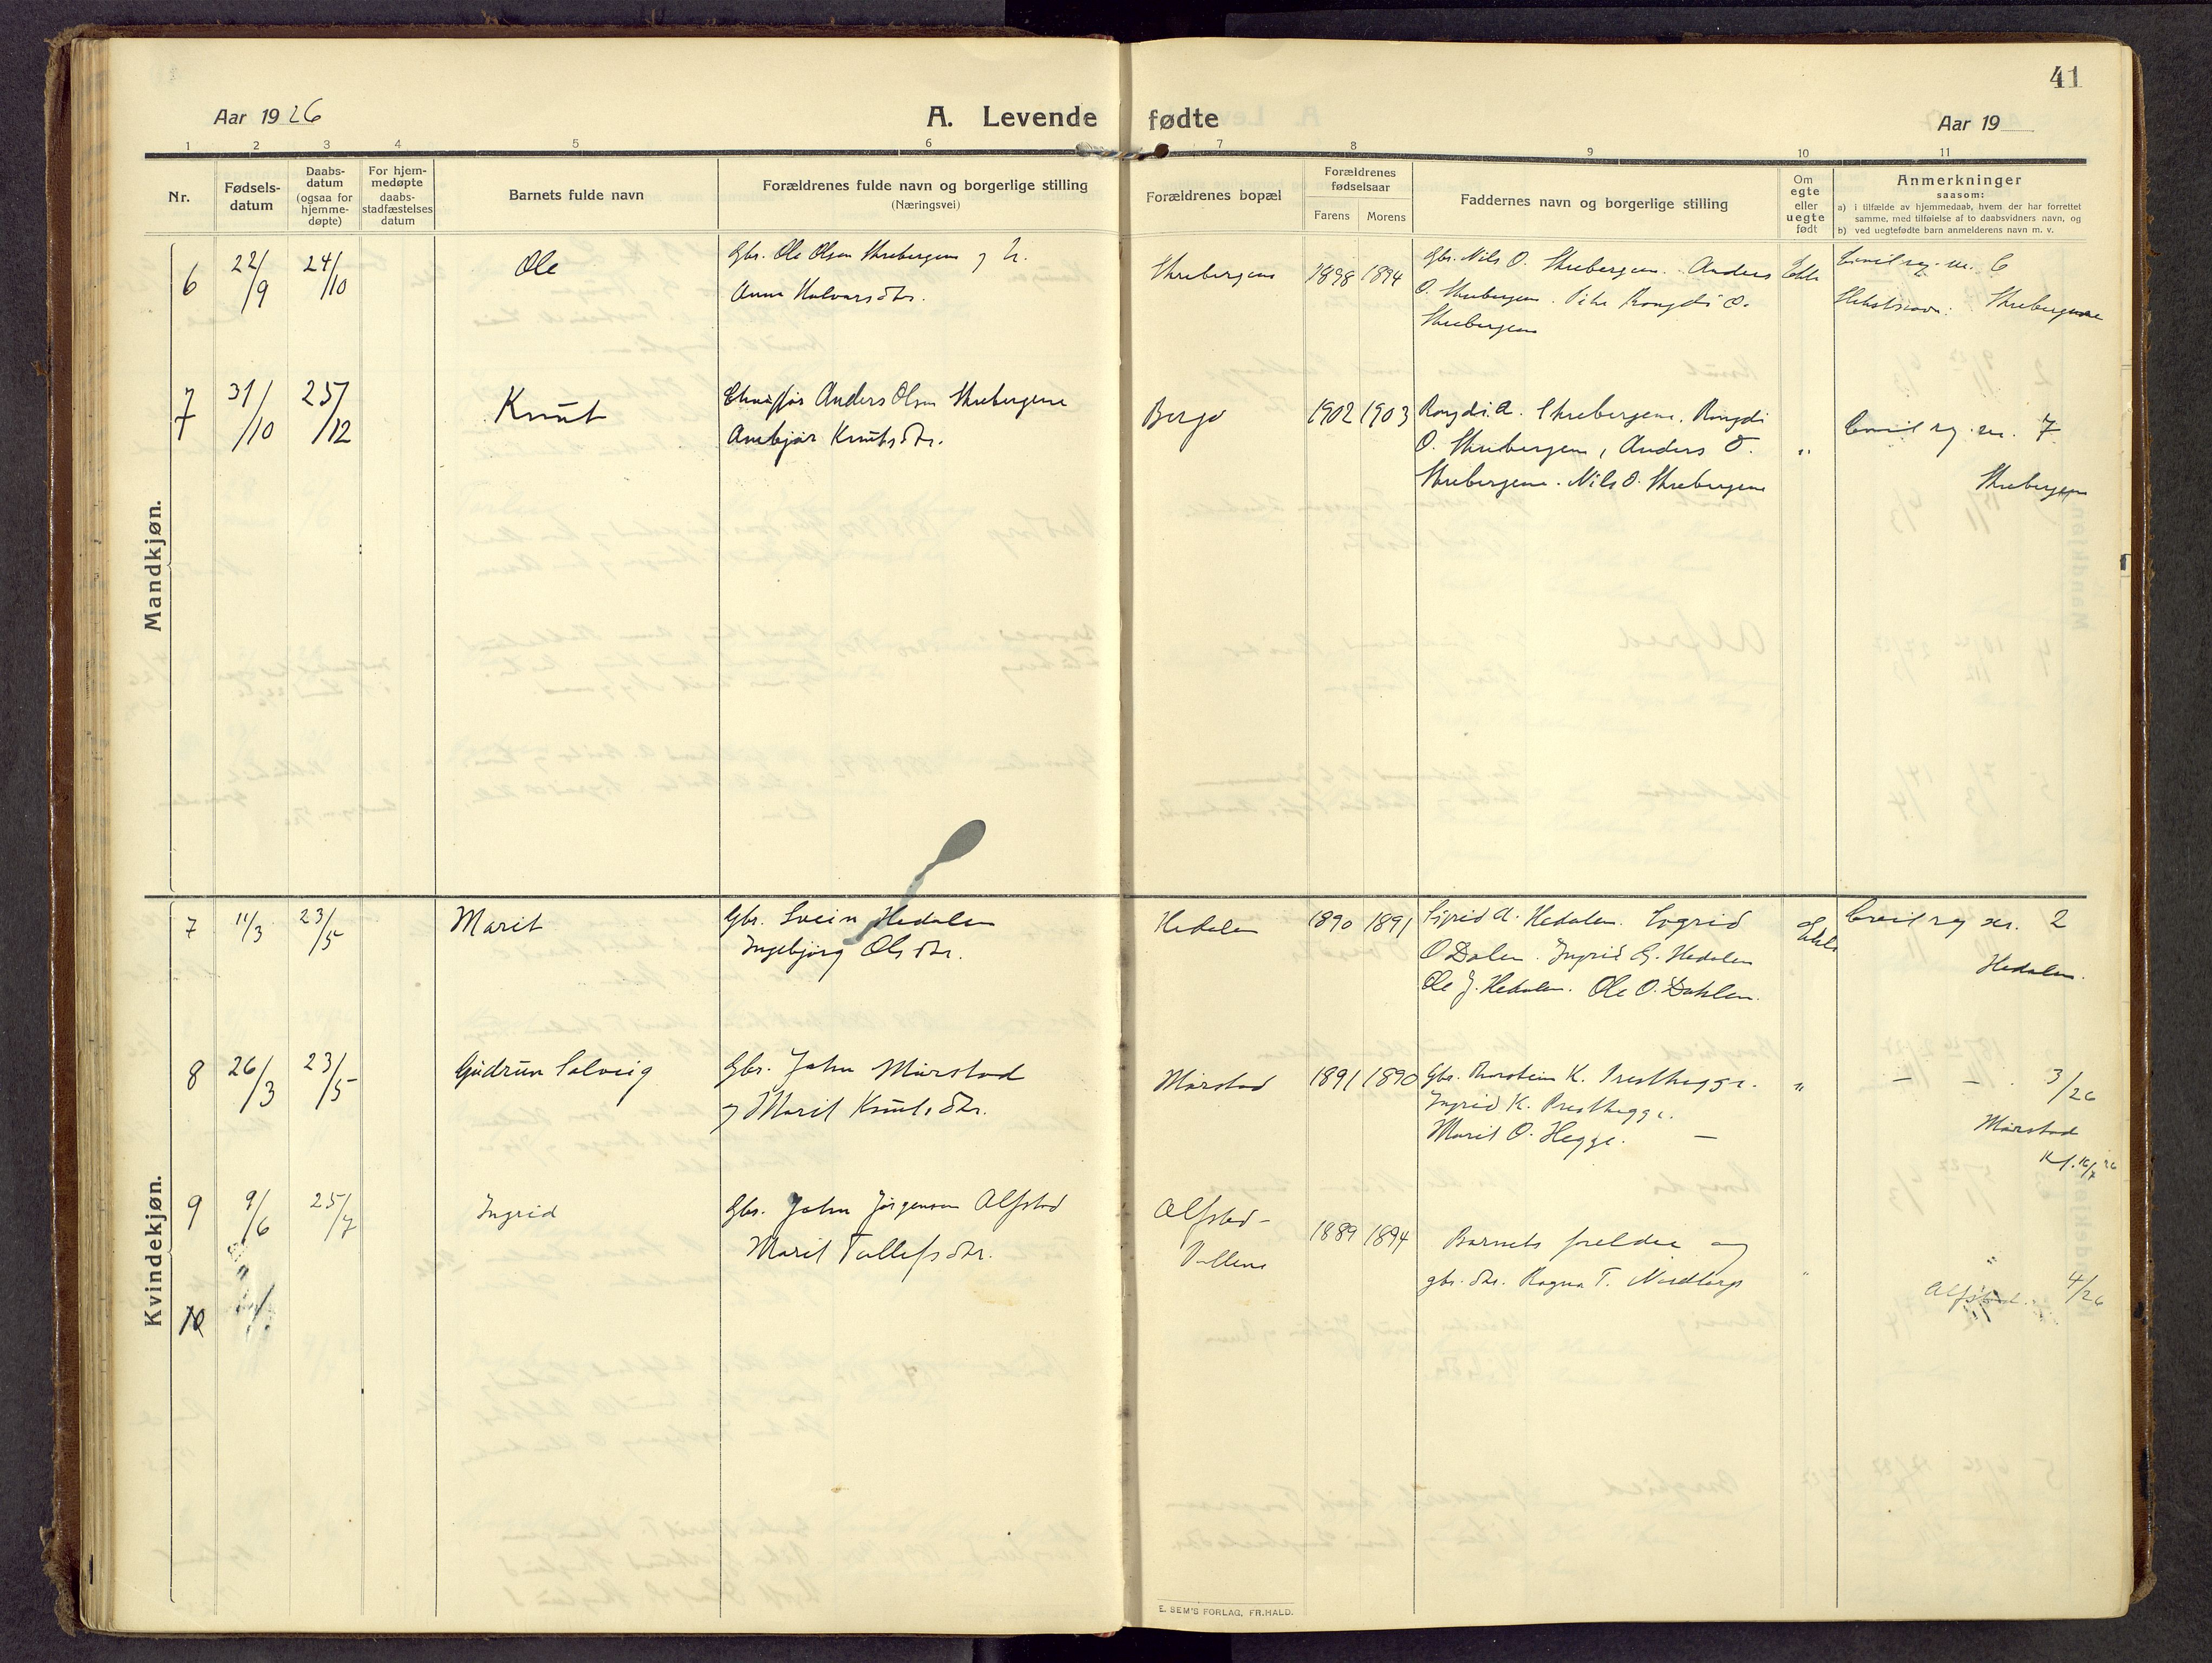 41
Aar 1926
A. Levende fødte
Aar 19
1 2 3 4 5 6 7 8 9 10 11
Nr.
Fødsels-
datum
Daabs-
datum
(ogsaa for
hjemme-
døpte)
For hjem-
medøpte
daabs-
stadfæstelses
datum
Barnets fulde navn
Forældrenes fulde navn og borgerlige stilling
(Næringsvei)
Forældrenes bopæl
Forældrenes
fødselsaar
Farens Morens
Faddernes navn og borgerlige stilling
Om
egte
eller
uegte
født
Anmerkninger
saasom:
a) i tilfælde av hjemmedaab, hvem der har forrettet
samme, med tilføielse af to daabsvidners navn, og
b) ved uegtefødte barn anmelderens navn m. v.
Mandkjøn.
6 22/9 24/10 Ole Gbr. Ole Olsen Skrebergene og h.
Anna Halvorsdtr.
Skrebergene 1898 1894
Gbr. Nils O. Skrebergene. Anders
O. Skrebergene. Pike Rangdi O.
Skrebergene
Ekte
Civil reg. nr. 6
Slektsnavn: Skrebergene
7 31/10 25/12 Knut Anders Olsen Skrebergene
Knutsdtr.
Bergo 1902 1903
Rangdi A. Skrebergene. Rangdi
O. Skrebergene, Anders O.
Skrebergene. Nils O. Skrebergene
"
Civil reg. nr. 7
Skrebergene
Kvindekjøn.
7 11/3 23/5 Marit Gbr. Svein Hedalen
Ingebjørg Olsdtr.
Hedalen 1890 1891
Sigrid A. Hedalen. Sigrid
O Dalen. Ingrid G. Hedalen
Ole J. Hedalen. Ole O. Dahlen.
Ekte
Civil reg nr. 2
Hedalen.
8 26/3 23/5 Gudrun Solveig Gbr. John Mørstad
og Marit Knutsdtr.
Mørstad 1891 1890
Gbr. Thorstein K. Presthegge.
Ingrid K. Presthegge.
Marit O. Hegge. —
"
— — . 3/26
Mørstad
9 9/6 25/7 Ingrid Gbr. John Jørgensen Alfstad
Marit Tollefsdtr.
Alfstad-
1889 1894
Barnets foreldre og
gbr. dtr. Ragna T. Nordtorp
"
" 4/26
Alfstad.
10
E. SEM'S FORLAG, FR.HALD.